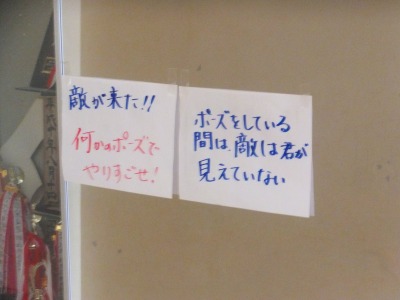 敵が来た!!
何かのポーズで
やりすごせ!
ポーズをしている
間は、敵は君が
見えていない